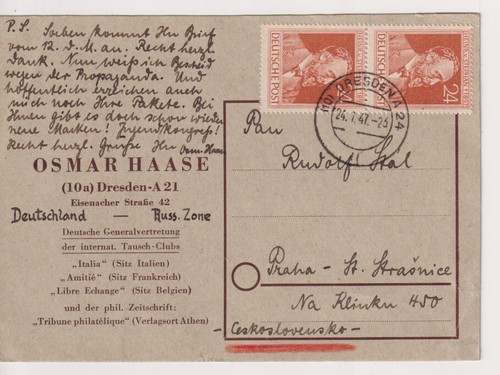 P.S. Soeben kommt Ihr Brief
vom 12. d. M. an. Recht herzl.
Dank. Nun weiß ich Bescheid
wegen der Propaganda. Und
hoffentlich erreichen auch
mich noch Ihre Pakete. Bei
Ihnen gibt es doch schon wieder
neue Marken! Jugendkongreß!
Recht herzl. Grüße Ihr Osm. Haase
OSMAR HAASE
(10a) Dresden-A 21
Eisenacher Straße 42
Deutschland — Russ. Zone
Deutsche Generalvertretung
der internat. Tausch-Clubs
„Italia" (Sitz Italien)
„Amitié" (Sitz Frankreich)
„Libre Echange" (Sitz Belgien)
und der phil. Zeitschrift:
„Tribune philatélique" (Verlagsort Athen)
DEUTSCHE POST
24
DEUTSCHE POST
24
(10) DRESDEN A 24
24.7.47.-23
Pan
Rudolf Stal
Praha - St. Strašnice
Na Klinku 450
- Československo -